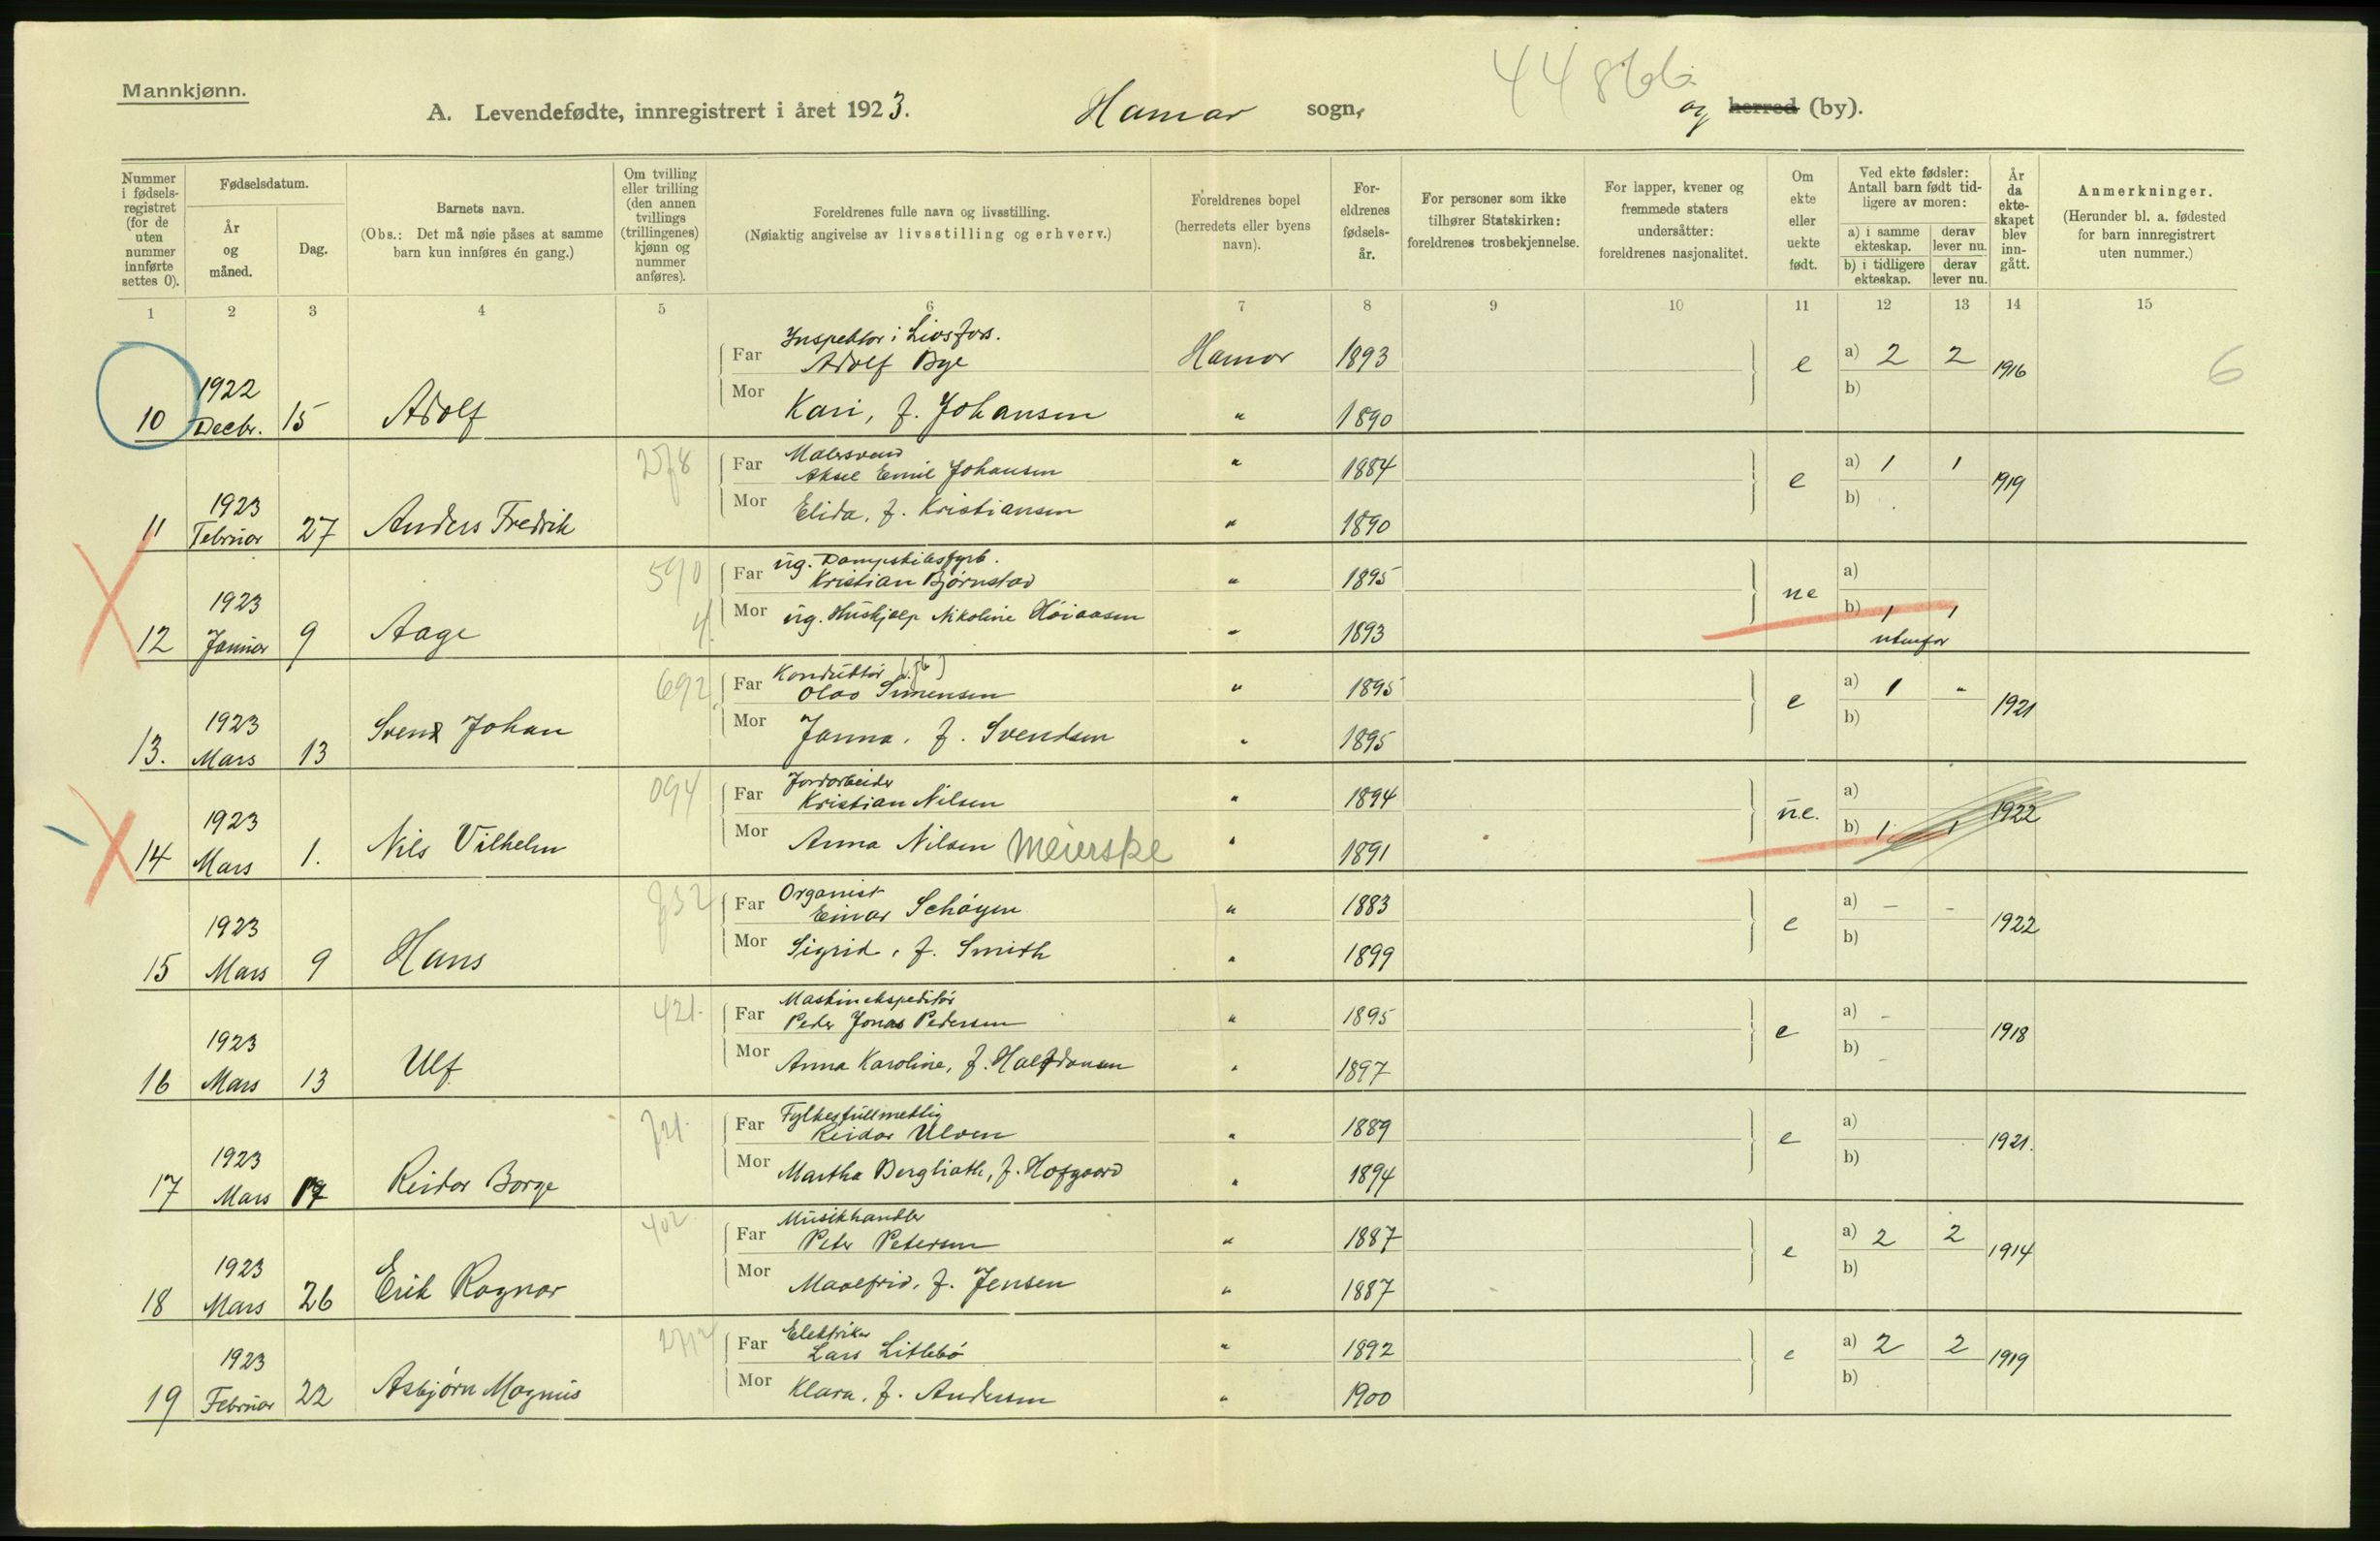 44866
Mannkjønn.
A. Levendefødte, innregistrert i året 1923. Hamar sogn, og herred (by).
Nummer i fødsels-registret (for de uten nummer innførte settes 0).
Fødselsdatum.
År og måned.
Dag.
Barnets navn.
(Obs.: Det må nøie påses at samme barn kun innføres én gang.)
Om tvilling eller trilling (den annen tvillings (trillingenes) kjønn og nummer anføres).
Foreldrenes fulle navn og livsstilling.
(Nøiaktig angivelse av livsstilling og erhverv.)
Foreldrenes bopel (herredets eller byens navn).
For-eldrenes fødsels-år.
For personer som ikke tilhører Statskirken: foreldrenes trosbekjennelse.
For lapper, kvener og fremmede staters undersåtter: foreldrenes nasjonalitet.
Om ekte eller uekte født.
Ved ekte fødsler: Antall barn født tid-ligere av moren:
a) i samme ekteskap. derav lever nu.
b) i tidligere ekteskap. derav lever nu.
År da ekte-skapet blev inn-gått.
Anmerkninger.
(Herunder bl. a. fødested for barn innregistrert uten nummer.)
1 2 3 4 5 6 7 8 9 10 11 12 13 14 15
Inspektør i Livsfors.
Far Adolf Bye Hamar 1893 e a) 2 2 1916 6
10 1922 Decbr. 15 Adolf
Mor Kari, f. Johansen " 1890 b)
2578
Malersvend
Far Aksel Emil Johansen " 1884 e a) 1 1 1919
11 1923 Februar 27 Anders Fredrik
Mor Elida, f. Kristiansen " 1890 b)
590
ug. Dampskibsfyrb.
Far Kristian Bjørnstad " 1895 ue a)
12 1923 Januar 9 Aage
4.
Mor ug. Huskjælp Nikoline Høiaasen " 1893 b) 1 1
utenfor
692
Konduktør
Far Olav Simensen " 1895 e a) 1 " 1921
13. 1923 Mars 13 Svend Johan
Mor Janna, f. Svendsen " 1895 b)
094
Jordarbeider
Far Kristian Nilsen " 1894 ue. a) 1922
14 1923 Mars 1. Nils Vilhelm
Mor Anna Nilsen Meierske " 1891 b) 1 1
Organist
Far Einar Schøyen " 1883 e a) - - 1922
15 1923 Mars 9 Hans
Mor Sigrid, f. Smith " 1899 b)
421.
Maskinekspeditør
Far Peder Jonas Pedersen " 1895 e a) - 1918
16 1923 Mars 13 Ulf
Mor Anna Karoline, f. Halfdansen " 1897 b) -
Fylkesfullmektig
Far Reidar Ulven " 1889 e a) 1921.
17 1923 Mars 17 Reidar Borge
Mor Martha Berglioth, f. Hofgaard " 1894 b)
402
Musikhandler
Far Peter Petersen " 1887 e a) 2 2 1914
18 1923 Mars 26 Erik Ragnar
Mor Maalfrid, f. Jensen " 1887 b)
Elektriker
Far Lars Litlebø " 1892 e a) 2 2 1919
19 1923 Februar 22 Asbjørn Magnus
Mor Klara, f. Andersen " 1900 b)